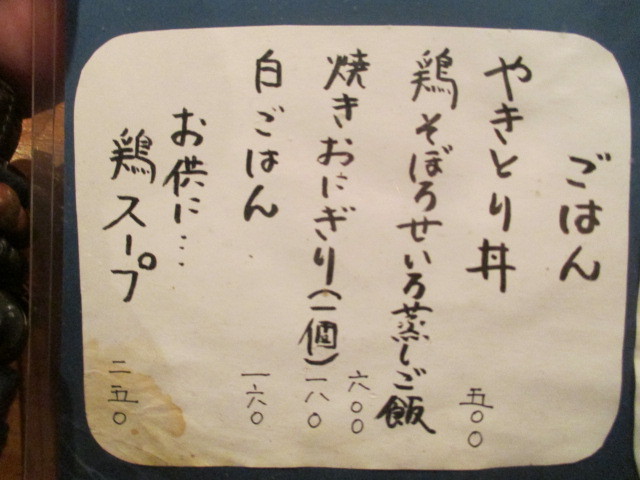 ごはん
やきとり丼 五〇〇
鶏そぼろせいろ蒸しご飯 六〇〇
焼きおにぎり(一個) 一八〇
白ごはん 一六〇
お供に…
鶏スープ 二五〇